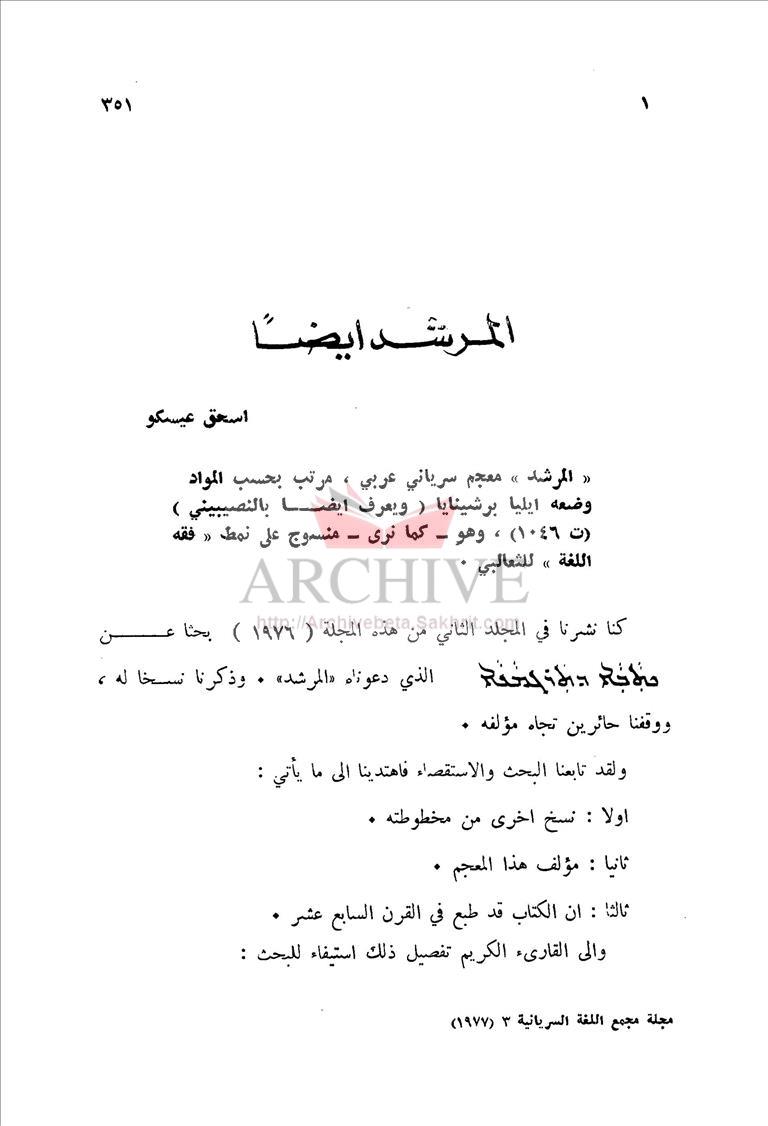 ١ ٣٥١
المرشد ايضًا
اسحق عيسكو
« المرشد » معجم سرياني عربي ، مرتب بحسب المواد
وضعه ايليا برشينايا ( ويعرف ايضا بالنصيبيني )
(ت ١٠٤٦) ، وهو ـ كما نرى ـ منسوج على نمط « فقه
اللغة » للثعالبي ٠
ARCHIVE
http://Archivebeta.Sakhrit.com
كنا نشرنا في المجلد الثاني من هذه المجلة ( ١٩٧٦ ) بحثا عن
ܟܬܒܐ ܕܬܪܓܡܢܐ الذي دعوناه «المرشد» ٠ وذكرنا نسخا له ،
ووقفنا حائرين تجاه مؤلفه ٠
ولقد تابعنا البحث والاستقصاء فاهتدينا الى ما يأتي :
اولا : نسخ اخرى من مخطوطته ٠
ثانيا : مؤلف هذا المعجم ٠
ثالثا : ان الكتاب قد طبع في القرن السابع عشر ٠
والى القارىء الكريم تفصيل ذلك استيفاء للبحث :
مجلة مجمع اللغة السريانية ٣ (١٩٧٧)